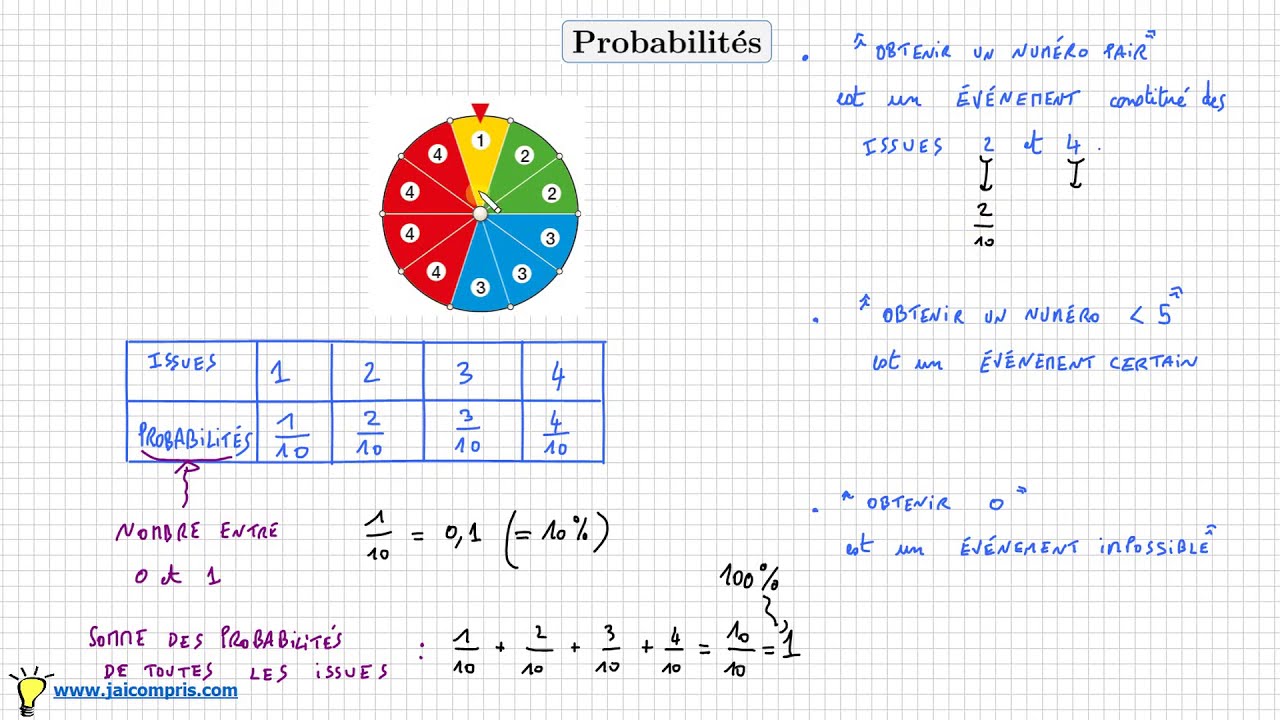 Probabilités
1
2
2
3
3
3
4
4
4
4
ISSUES 1 2 3 4
PROBABILITÉS 1/10 2/10 3/10 4/10
NOMBRE ENTRE
0 et 1
1/10 = 0,1 (= 10 %)
100 %
SOMME DES PROBABILITÉS
DE TOUTES LES ISSUES : 1/10 + 2/10 + 3/10 + 4/10 = 10/10 = 1
www.jaicompris.com
• "OBTENIR UN NUMÉRO PAIR"
est un ÉVÉNEMENT constitué des
ISSUES 2 et 4.
2/10
• "OBTENIR UN NUMÉRO < 5"
est un ÉVÉNEMENT CERTAIN
• "OBTENIR 0"
est un ÉVÉNEMENT IMPOSSIBLE"